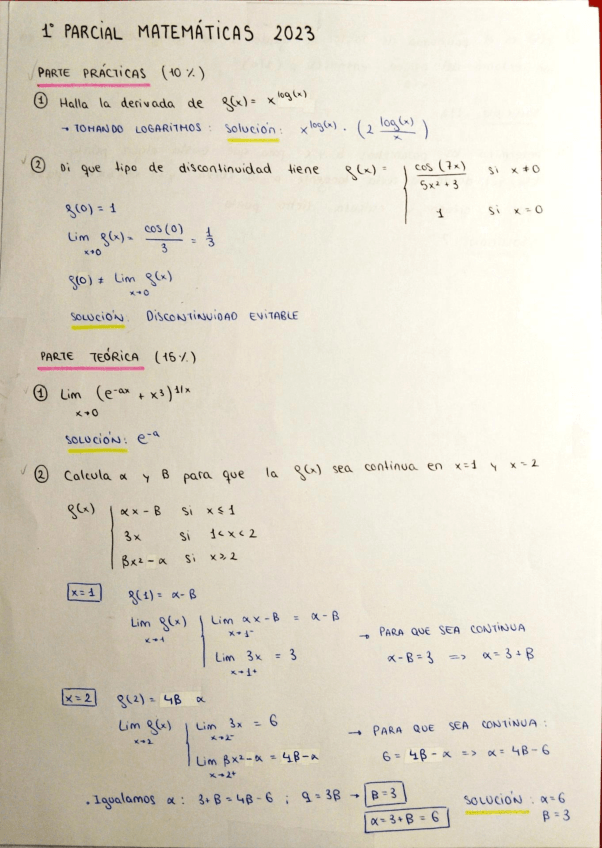 1º PARCIAL MATEMÁTICAS 2023
PARTE PRÁCTICAS (10%)
① Halla la derivada de f(x) = x^log(x)
→ TOMANDO LOGARITMOS: Solución: x^log(x) · (2 log(x)/x)
② Di que tipo de discontinuidad tiene f(x) = { cos(7x)/(5x²+3) si x≠0
1 si x=0
f(0) = 1
Lim x→0 f(x) = cos(0)/3 = 1/3
f(0) ≠ Lim x→0 f(x)
SOLUCIÓN: DISCONTINUIDAD EVITABLE
PARTE TEÓRICA (15%)
① Lim x→0 (e^-ax + x³)^1/x
SOLUCIÓN: e^-a
② Calcula α y B para que la f(x) sea continua en x=1 y x=2
f(x) | αx - B si x≤1
3x si 1<x<2
Bx² - α si x≥2
x=1 f(1) = α-B
Lim x→1 f(x) | Lim x→1⁻ αx-B = α-B
Lim x→1⁺ 3x = 3
→ PARA QUE SEA CONTINUA
α-B=3 => α=3+B
x=2 f(2) = 4B α
Lim x→2 f(x) | Lim x→2⁻ 3x = 6
Lim x→2⁺ Bx²-α = 4B-α
→ PARA QUE SEA CONTINUA:
6 = 4B-α => α = 4B-6
. Igualamos α: 3+B = 4B-6 ; 9=3B → B=3
α=3+B = 6
SOLUCIÓN: α=6
B=3